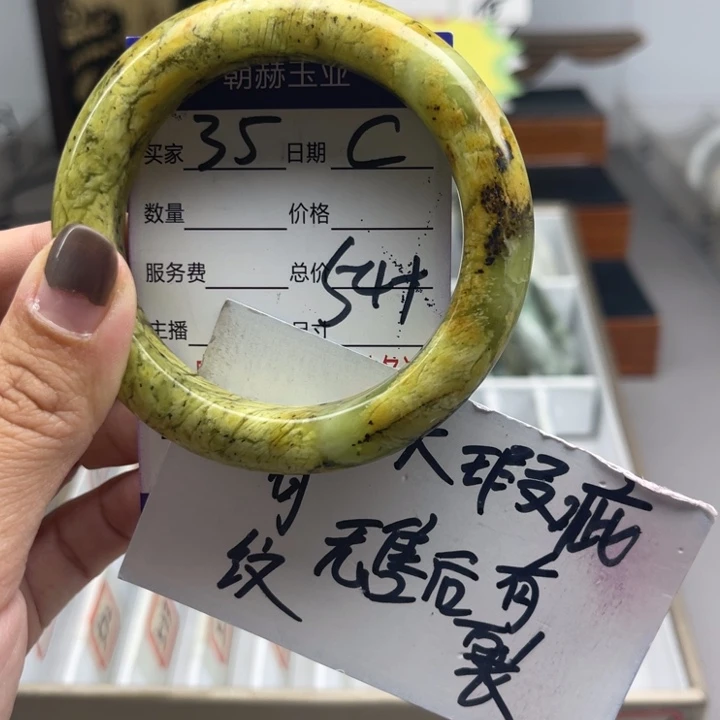 朝赫玉业
买家 35 日期 C
数量 价格
服务费 总价 54
主播 尺寸
大瑕疵
可 无售后有
纹 裂